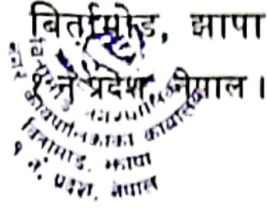 बिर्तामोड, झापा
१ नं प्रदेश, नेपाल ।
नगर कार्यपालिकाको कार्यालय
बिर्तामोड, झापा
१ नं. प्रदेश, नेपाल